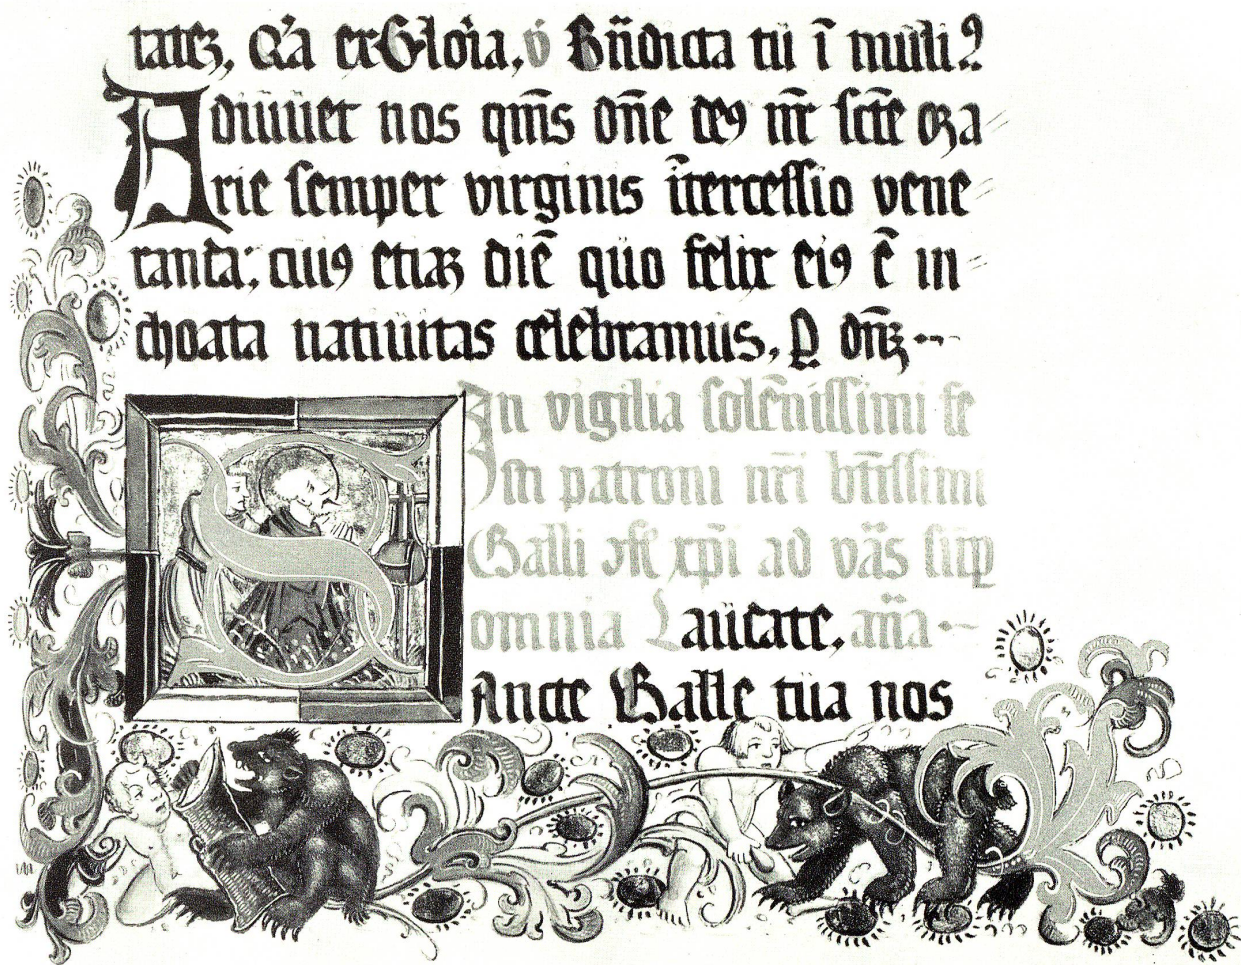 tatez, Q'a ex Gloria, v̓ Bñdicta tū ī mūli2
Adiūuet nos qm̄s dñe deꝰ nr̄ scte Ma⸗
rie semper virginis ītercessio vene⸗
randa: cuiꝰ etiaꝫ diē quo felix eiꝰ ē in⸗
choata natiuitas celebramus, ꝑ dn̄ꝫ
In vigilia solēnissimi fe
sti patroni nr̄i btīssimi
Galli xp̄i ad vās sup
omnia Laudate, an̄a
Sancte Galle tua nos